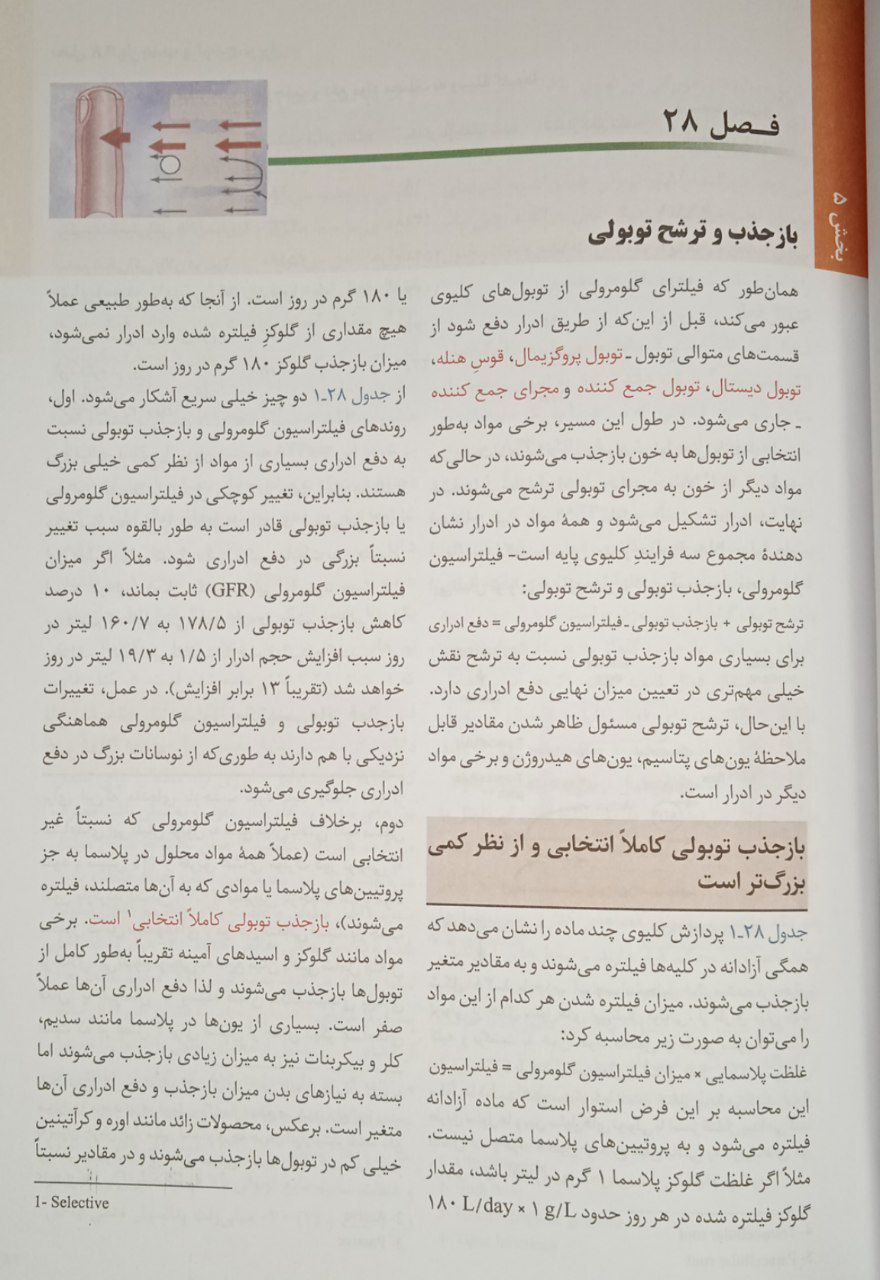 فصل ۲۸
بخش ۵
بازجذب و ترشح توبولی
همان‌طور که فیلترای گلومرولی از توبول‌های کلیوی
عبور می‌کند، قبل از این‌که از طریق ادرار دفع شود از
قسمت‌های متوالی توبول ـ توبول پروگزیمال، قوس هنله،
توبول دیستال، توبول جمع کننده و مجرای جمع کننده
ـ جاری می‌شود. در طول این مسیر، برخی مواد به‌طور
انتخابی از توبول‌ها به خون بازجذب می‌شوند، در حالی‌که
مواد دیگر از خون به مجرای توبولی ترشح می‌شوند. در
نهایت، ادرار تشکیل می‌شود و همهٔ مواد در ادرار نشان
دهندهٔ مجموع سه فرایندِ کلیوی پایه است- فیلتراسیون
گلومرولی، بازجذب توبولی و ترشح توبولی:
ترشح توبولی + بازجذب توبولی ـ فیلتراسیون گلومرولی = دفع ادراری
برای بسیاری مواد بازجذب توبولی نسبت به ترشح نقش
خیلی مهم‌تری در تعیین میزان نهایی دفع ادراری دارد.
با این‌حال، ترشح توبولی مسئول ظاهر شدن مقادیر قابل
ملاحظهٔ یون‌های پتاسیم، یون‌های هیدروژن و برخی مواد
دیگر در ادرار است.
بازجذب توبولی کاملاً انتخابی و از نظر کمی
بزرگ‌تر است
جدول ۲۸ـ۱ پردازش کلیوی چند ماده را نشان می‌دهد که
همگی آزادانه در کلیه‌ها فیلتره می‌شوند و به مقادیر متغیر
بازجذب می‌شوند. میزان فیلتره شدن هر کدام از این مواد
را می‌توان به صورت زیر محاسبه کرد:
غلظت پلاسمایی × میزان فیلتراسیون گلومرولی = فیلتراسیون
این محاسبه بر این فرض استوار است که ماده آزادانه
فیلتره می‌شود و به پروتیین‌های پلاسما متصل نیست.
مثلاً اگر غلظت گلوکز پلاسما ۱ گرم در لیتر باشد، مقدار
گلوکز فیلتره شده در هر روز حدود ۱۸۰ L/day × ۱ g/L
یا ۱۸۰ گرم در روز است. از آنجا که به‌طور طبیعی عملاً
هیچ مقداری از گلوکزِ فیلتره شده وارد ادرار نمی‌شود،
میزان بازجذب گلوکز ۱۸۰ گرم در روز است.
از جدول ۲۸ـ۱ دو چیز خیلی سریع آشکار می‌شود. اول،
روندهای فیلتراسیون گلومرولی و بازجذب توبولی نسبت
به دفع ادراری بسیاری از مواد از نظر کمی خیلی بزرگ
هستند. بنابراین، تغییر کوچکی در فیلتراسیون گلومرولی
یا بازجذب توبولی قادر است به طور بالقوه سبب تغییر
نسبتاً بزرگی در دفع ادراری شود. مثلاً اگر میزان
فیلتراسیون گلومرولی (GFR) ثابت بماند، ۱۰ درصد
کاهش بازجذب توبولی از ۱۷۸/۵ به ۱۶۰/۷ لیتر در
روز سبب افزایش حجم ادرار از ۱/۵ به ۱۹/۳ لیتر در روز
خواهد شد (تقریباً ۱۳ برابر افزایش). در عمل، تغییرات
بازجذب توبولی و فیلتراسیون گلومرولی هماهنگی
نزدیکی با هم دارند به طوری‌که از نوسانات بزرگ در دفع
ادراری جلوگیری می‌شود.
دوم، برخلاف فیلتراسیون گلومرولی که نسبتاً غیر
انتخابی است (عملاً همهٔ مواد محلول در پلاسما به جز
پروتیین‌های پلاسما یا موادی که به آن‌ها متصلند، فیلتره
می‌شوند)، بازجذب توبولی کاملاً انتخابی۱ است. برخی
مواد مانند گلوکز و اسیدهای آمینه تقریباً به‌طور کامل از
توبول‌ها بازجذب می‌شوند و لذا دفع ادراری آن‌ها عملاً
صفر است. بسیاری از یون‌ها در پلاسما مانند سدیم،
کلر و بیکربنات نیز به میزان زیادی بازجذب می‌شوند اما
بسته به نیازهای بدن میزان بازجذب و دفع ادراری آن‌ها
متغیر است. برعکس، محصولات زائد مانند اوره و کرآتینین
خیلی کم در توبول‌ها بازجذب می‌شوند و در مقادیر نسبتاً
1- Selective